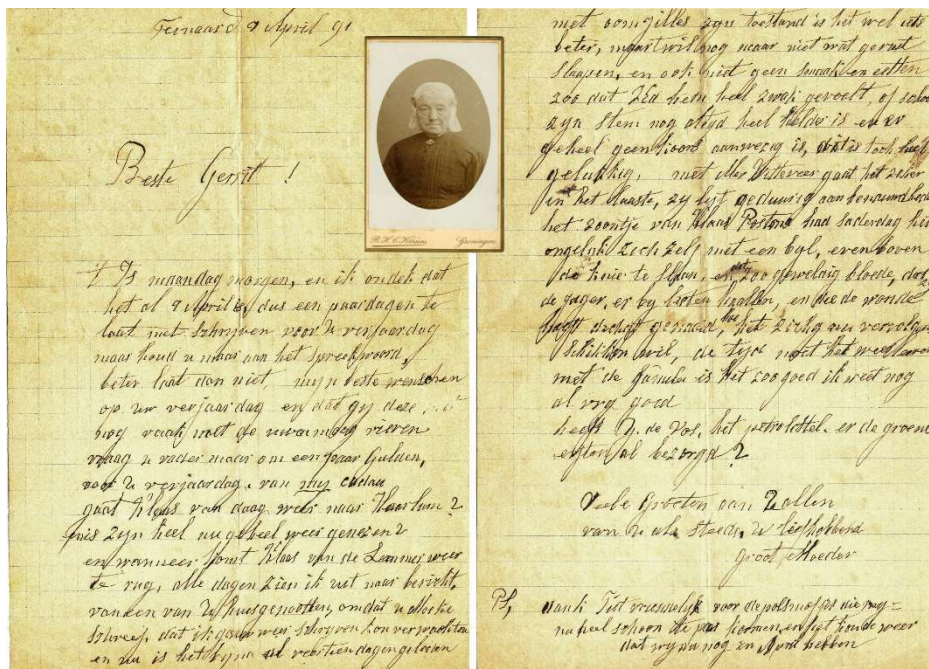 9 April 91
Beste Gerrit !
Is maandag morgen, en ik ondek dat
het al 9 April is, dus een paar dagen te
laat met schrijven voor U verjaardag
maar houd u maar aan het spreekwoord,
beter laat dan niet, mijn beste wenschen
op uw verjaardag en dat gij deze
nog vaak
vraag u vader maar om een paar Gulden,
voor U verjaardag. van mij cadau
gaat Klaas van daag weer naar Haarlem ?
is zyn heel nu geheel weer genezen ?
en wanneer komt Klaas van de Lemmer weer
te rug, alle dagen zien ik uit naar bericht,
van een van U huisgenooten, omdat u Moeke
schreef, dat ik gauw weer schrijven kon verwachten
en nu is het byna al veertien dagen geleden
R. H. C. Groningen
met oom gilles zyn toestand is het wel iets
beter, maar t wil nog maar niet wat gerust
slaapen, en ook niet geen smaak om eetten
zoo dat ZEd hem heel zwak gevoelt, of schoon
zyn stem nog altyd heel helder is en er
geheel geen koors aanwezig is, dit is toch heel
gelukkig, met gaat het zeker
in het laaste, zy lyt geduurig aan benauwdheid
het zoontje van Klaas Postma had saderdag het
ongeluk zich zelf met een byl, even boven
de knie te slaan, en zoo geweldig bloede, dat
de jager er by hallen, en die de wonde
heeft genaaid, het zich nu vervolgens
schikken wil, de tijd moet het weer leeren
met de familie is het zoo goed ik weet nog
al vry goed
heeft de Vos, het petrolstel. er de groene
erten al bezorgd ?
Vele Groeten aan U allen
van U als steeds U liefhebbend
Groot Moeder
PS, dank Tet vriendelyk voor de polsmofjes die my
nu heel schoon te pas koomen, en het koude weer
dat wy nu nog in April hebben